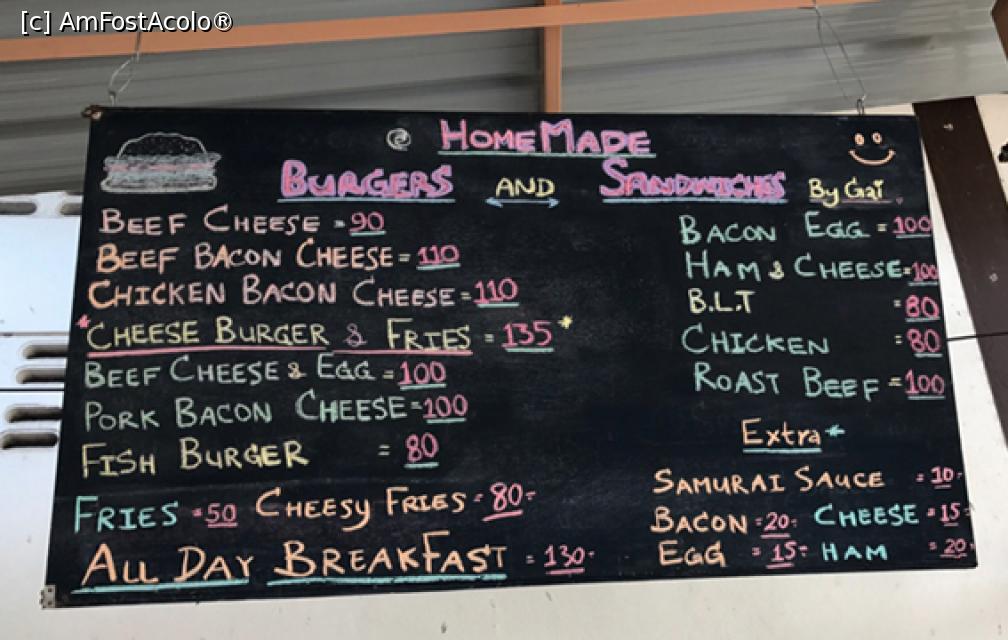 [c] AmFostAcolo®
HomeMade
Burgers AND Sandwiches By Gai
Beef Cheese = 90
Beef Bacon Cheese = 110
Chicken Bacon Cheese = 110
*Cheese Burger & Fries = 135*
Beef Cheese & Egg = 100
Pork Bacon Cheese = 100
Fish Burger = 80
Fries = 50 Cheesy Fries = 80-
All Day Breakfast = 130-
Bacon Egg = 100
Ham & Cheese = 100
B.L.T = 80
Chicken = 80
Roast Beef = 100
Extra*
Samurai Sauce = 10-
Bacon = 20- Cheese = 15-
Egg = 15- Ham = 20-